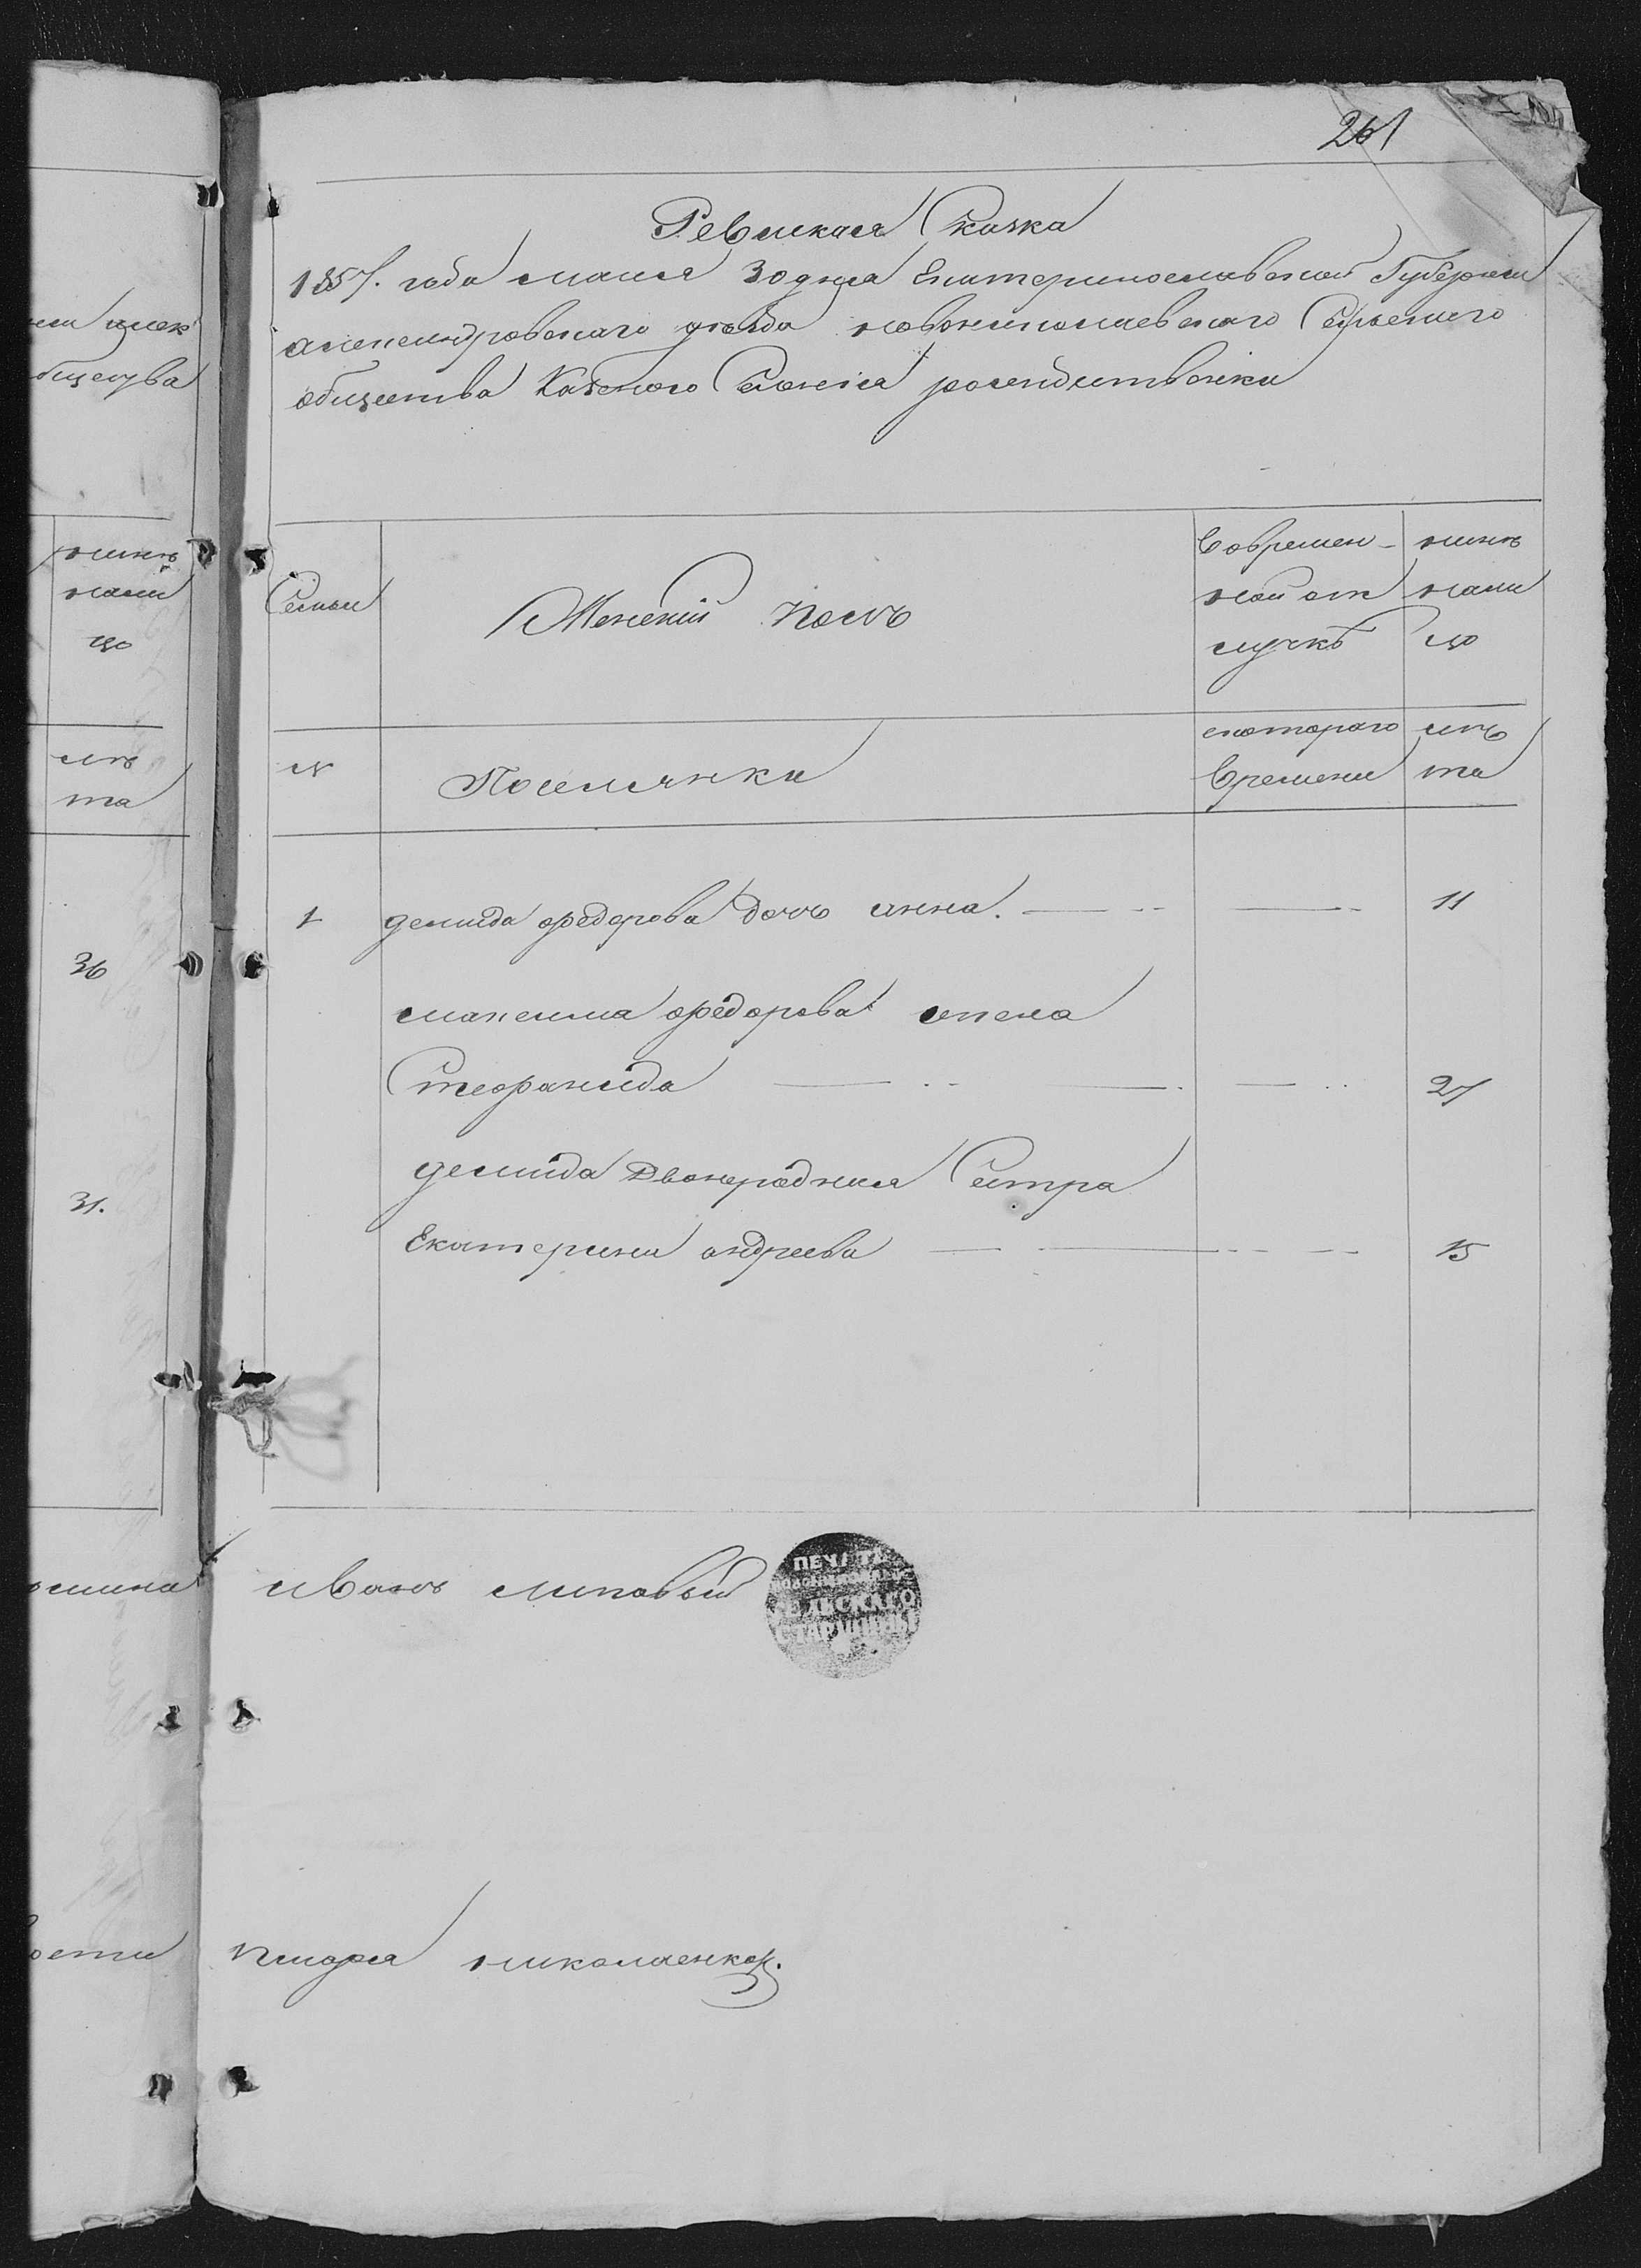 261
Ревизкая Сказка
1857. года мaия 30 дня Екатеринославской Губернии
александровского уезда новониколаевского Сельского
общества Казеного Селения рождественки
Семьи
Женский полъ
Вовремен-
ной отлучкѣ
ныне
нали
цо
№
Поселянки
скоторого
времени
лѣ
та
1 демида федорова дочь анна. 11
максима федорова жена
Стефанида 27
демида Двоюродная Сестра
Екатерина андреева 15
иванъ липовый
ПЕЧАТЬ
СЕЛЬСКАГО
СТАРШИНЫ
писаря николаенко
ныне
нали
цо
лѣ
та
36
31.